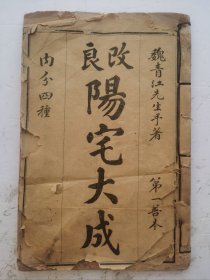 魏青江先生手著
第一善本
改良
陽宅大成
内分四種